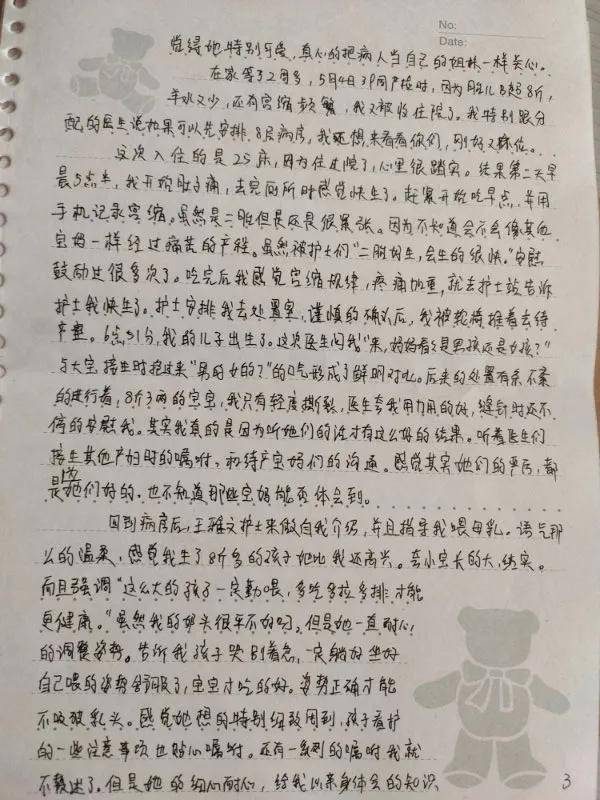 No:
Date:
觉得她特别可爱，真心的把病人当自己的姐妹一样关心。
在家等了2周多，5月4日39周产检时，因为胎儿B超8斤，
羊水又少，还有宫缩频繁，我又被收住院了。我特别跟分
配的医生说如果可以先安排8层病房，我还想来看看你们，刚好又床位。
这次入住的是25床，因为住过院了，心里很踏实。结果第二天早
晨5点半，我开始肚子痛，去完厕所时感觉快生了。赶紧开始吃早点，并用
手机记录宫缩。虽然是二胎但是还是很紧张。因为不知道会不会像其他
宝妈一样经过痛苦的产程。虽然被护士们“二胎好生，会生的很快。”安慰
鼓励过很多次了。吃完后我感觉宫缩规律，疼痛加重，就去护士站告诉
护士我快生了。护士安排我去处置室，谨慎的确认后，我被轮椅推着去待
产室。6点51分，我的儿子出生了。这次医生问我“来，妈妈看看是男孩还是女孩？”
与大宝接生时抱过来“男的女的？”的口气形成了鲜明对比。后来的处置有条不紊
的进行着，8斤3两的宝宝，我只有轻度撕裂，医生夸我用力用的好，缝针时还不
停的安慰我。其实我真的是因为听她们的话才有这么好的结果。听着医生们
接生其他产妇时的嘱咐，和待产宝妈们的沟通。感觉其实她们的严厉，都
是为她们好的。也不知道那些宝妈能否体会到。
回到病房后，王雅文护士来做自我介绍，并且指导我喂母乳。语气那
么的温柔，感觉我生了8斤多的孩子她比我还高兴。夸小宝长的大，结实。
而且强调“这么大的孩子一定勤喂，多吃多拉多排才能
更健康。”虽然我的奶头很平不好吃。但是她一直耐心
的调整姿势。告诉我孩子哭别着急，一定躺好坐好
自己喂的姿势舒服了，宝宝才吃的好。姿势正确才能
不吸破乳头。感觉她想的特别细致周到，孩子看护
的一些注意事项也贴心嘱咐。还有一系列的嘱咐我就
不赘述了。但是她的细心耐心，给我以亲身体会的知识
3